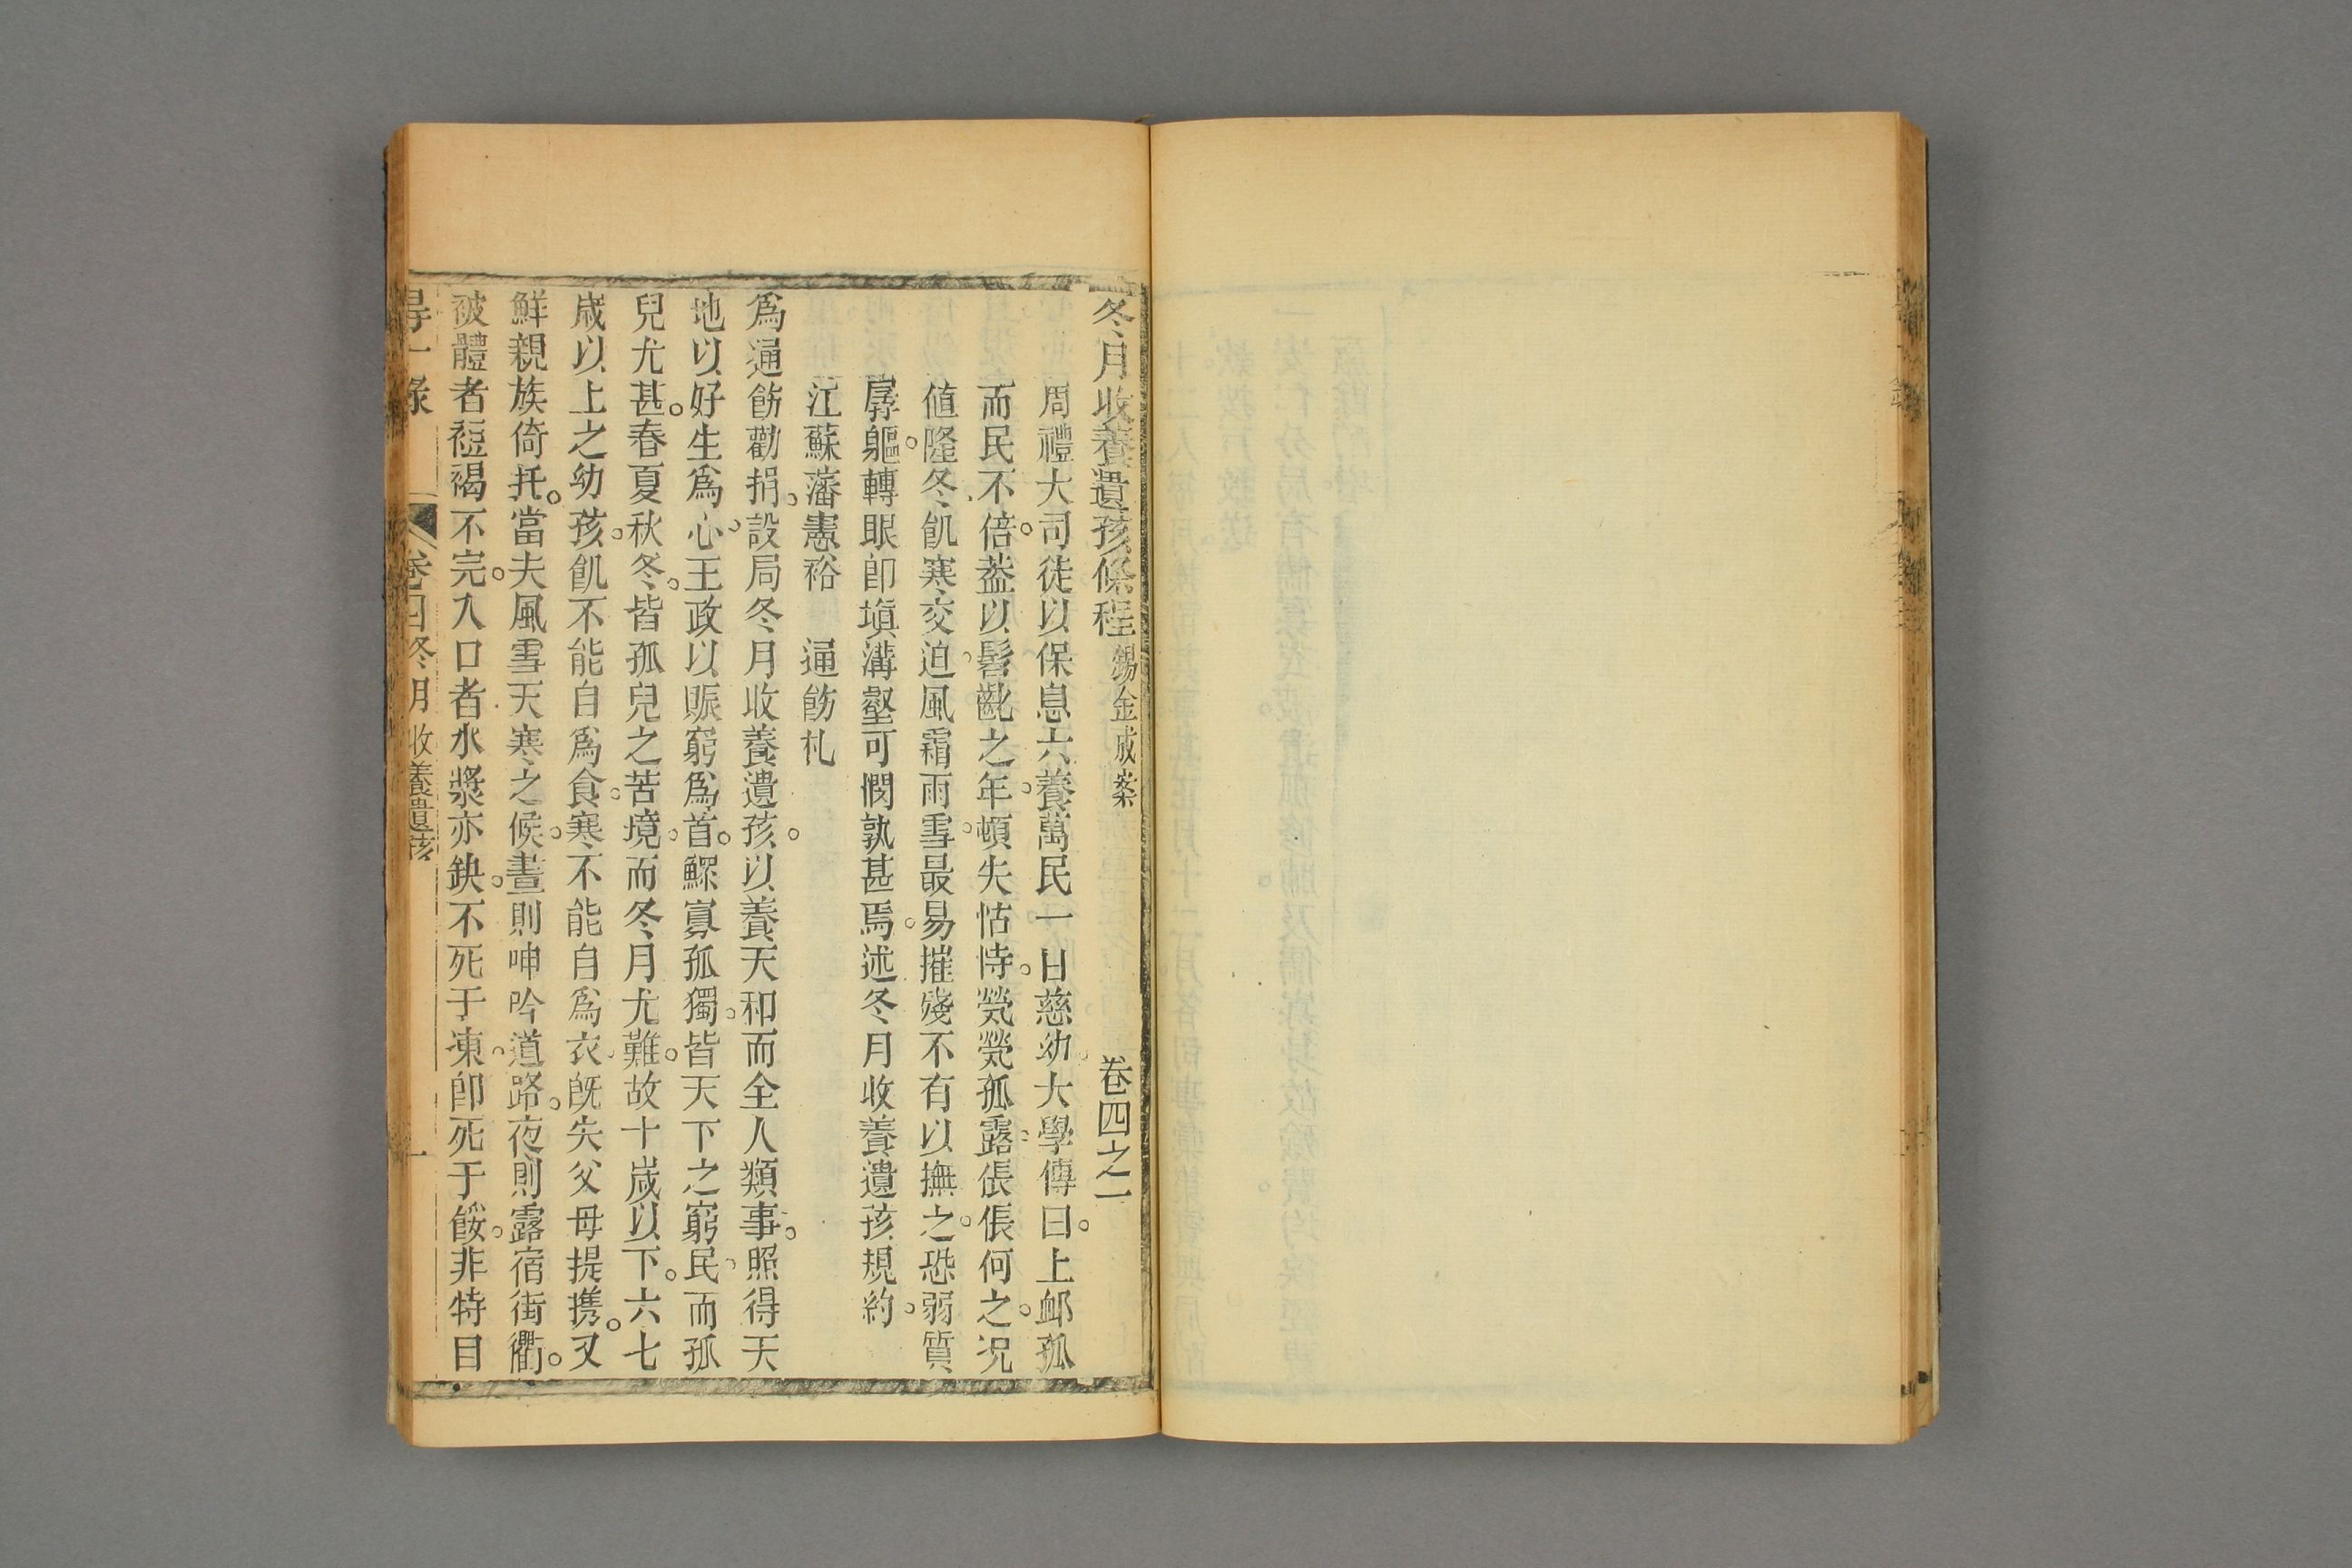 冬月收養遺孩條程 錫金成案 卷四之一
周禮大司徒以保息六養萬民一曰慈幼大學傳曰。上卹孤
而民不倍。蓋以髫齔之年。頓失怙恃。煢煢孤露。倀倀何之。況
値隆冬。飢寒交迫。風霜雨雪。最易摧殘。不有以撫之。恐弱質
孱軀。轉眼卽塡溝壑。可憫孰甚焉。述冬月收養遺孩規約。
江蘇藩憲裕 通飭札
爲通飭勸捐。設局冬月收養遺孩。以養天和而全人類事。照得天
地以好生爲心。王政以賑窮爲首。鰥寡孤獨。皆天下之窮民。而孤
兒尤甚。春夏秋冬。皆孤兒之苦境。而冬月尤難。故十歲以下。六七
歲以上之幼孩。飢不能自爲食。寒不能自爲衣。旣失父母提攜。又
鮮親族倚托。當夫風雪天寒之候。晝則呻吟道路。夜則露宿街衢。
被體者短褐不完。入口者水漿亦缺。不死于凍。卽死于餒。非特目
得一錄 卷四冬月收養遺孩 一